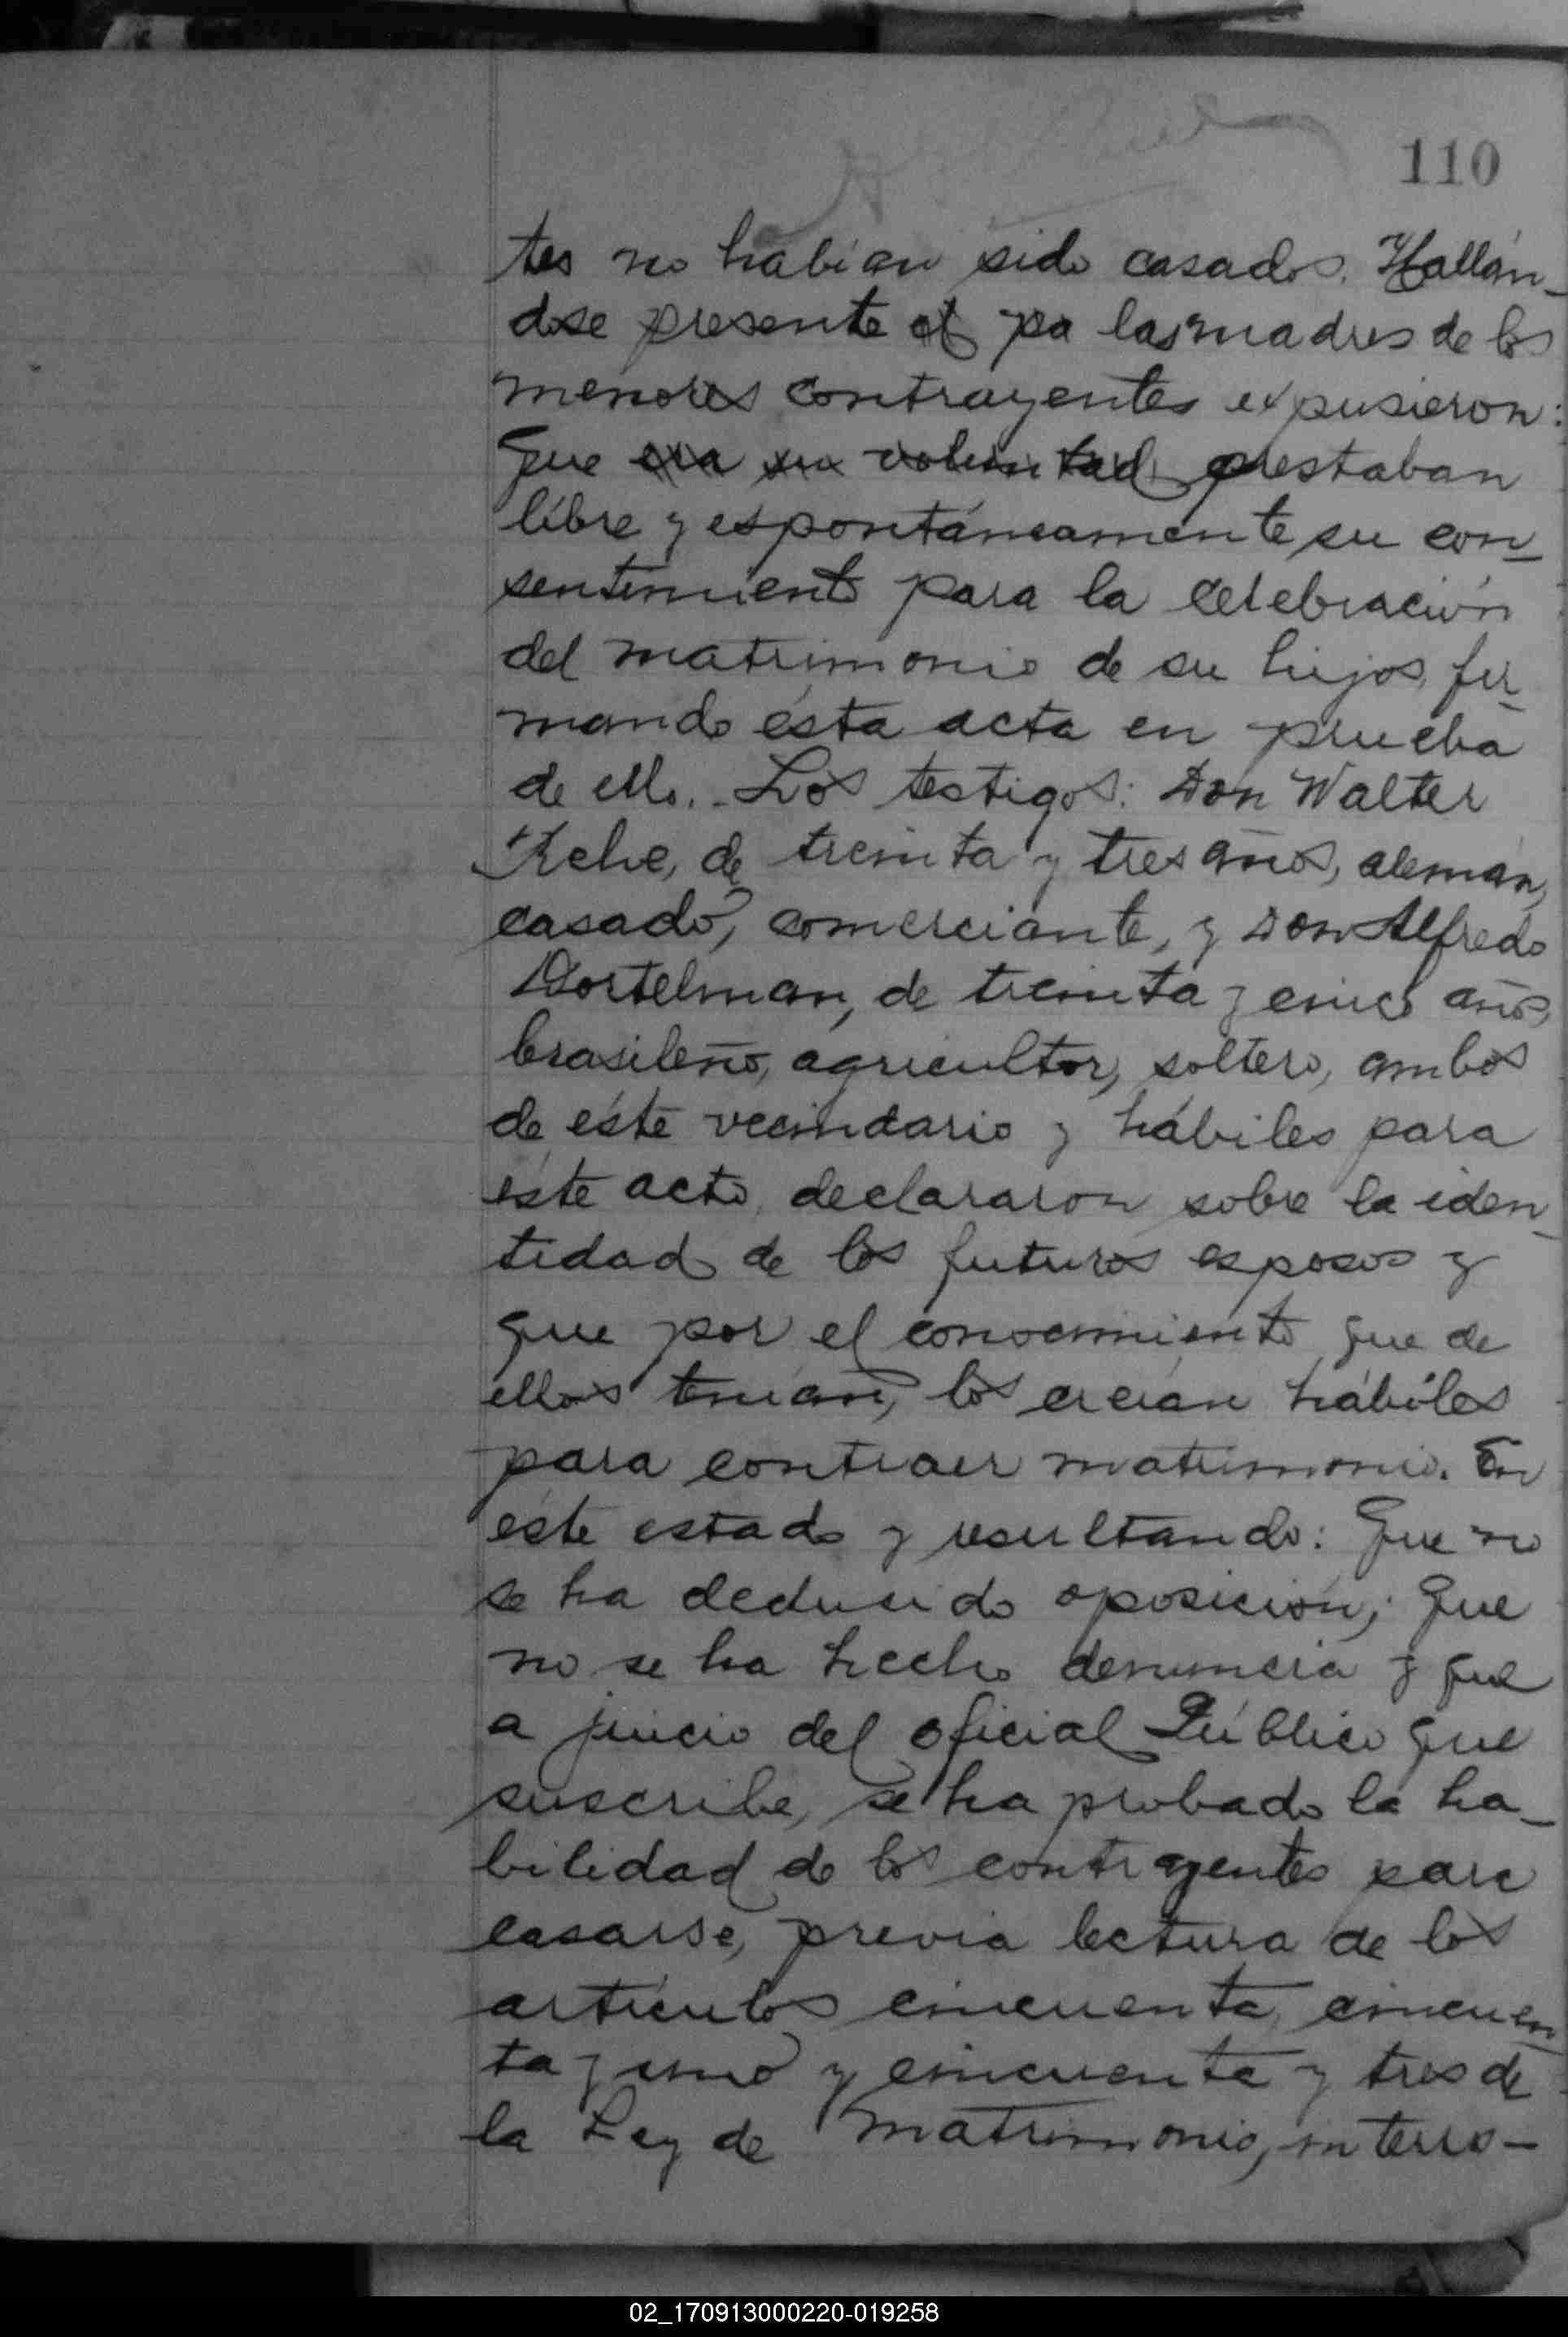 110
tes no habían sido casados. Hallán-
dose presente el pa las madres de los
menores contrayentes expusieron:
Que era su voluntad prestaban
libre y espontáneamente su con-
sentimiento para la celebración
del matrimonio de su hijos, fir-
mando ésta acta en prueba
de ello. Los testigos: Don Walter
de treinta y tres años, alemán,
casado, comerciante, y Don Alfredo
Dortelman, de treinta y cinco años,
brasileño, agricultor, soltero, ambos
de éste vecindario y hábiles para
éste acto, declararon sobre la iden-
tidad de los futuros esposos y
que por el conocimiento que de
ellos tenían, los creían hábiles
para contraer matrimonio. En
éste estado y resultando: Que no
se ha deducido oposición; Que
no se ha hecho denuncia y que
a juicio del oficial Público que
suscribe, se ha probado la ha-
bilidad de los contrayentes para
casarse, previa lectura de los
artículos cincuenta, cincuen-
ta y uno y cincuenta y tres de
la Ley de Matrimonio, interro-
02_170913000220-019258